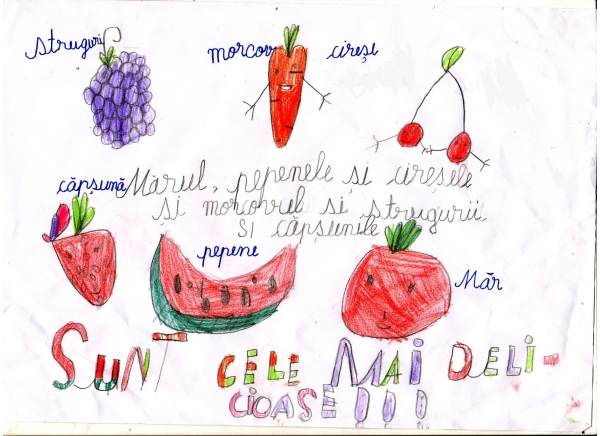 struguri
morcov
cireși
căpșună
Mărul, pepenele și cireșele
și morcovul si strugurii
SI căpșunile
pepene
Măr
SUNT CELE MAI DELI-
CIOASE !!!